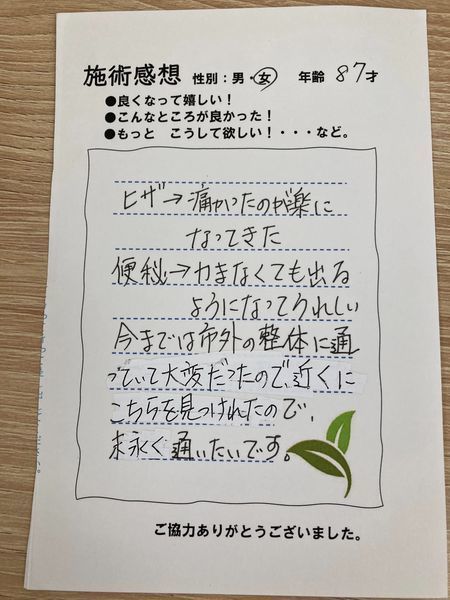 施術感想 性別：男・女 年齢 87才
●良くなって嬉しい！
●こんなところが良かった！
●もっと こうして欲しい！・・・など。
ヒザ→痛かったのが楽に
なってきた
便秘→力まなくても出る
ようになってうれしい
今までは市外の整体に通
っていて大変だったので、近くに
こちらを見つけれたので、
末永く通いたいです。
ご協力ありがとうございました。